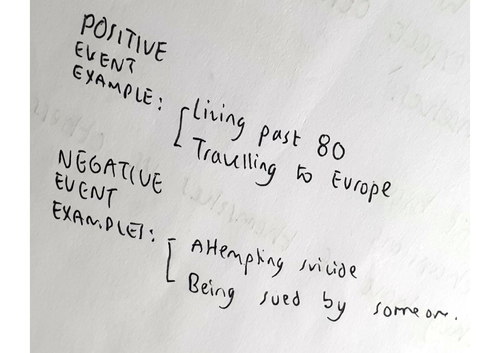 POSITIVE
EVENT
EXAMPLE:
Living past 80
Travelling to Europe
NEGATIVE
EVENT
EXAMPLE:
Attempting suicide
Being sued by someone.